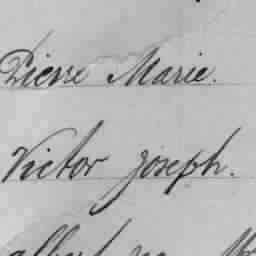 Pierre Marie.
Victor Joseph.